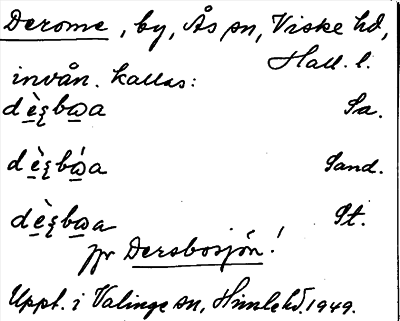 Derome, by, Ås sn, Viske hd,
Hall. l.
invån. kallas:
dè̱ʂbω̱a Sa.
dè̱ʂbώ̱a Sand.
dè̱ʂbω̱a St.
jfr Dersbosjön!
Uppt. i Valinge sn, Himle hd. 1949.